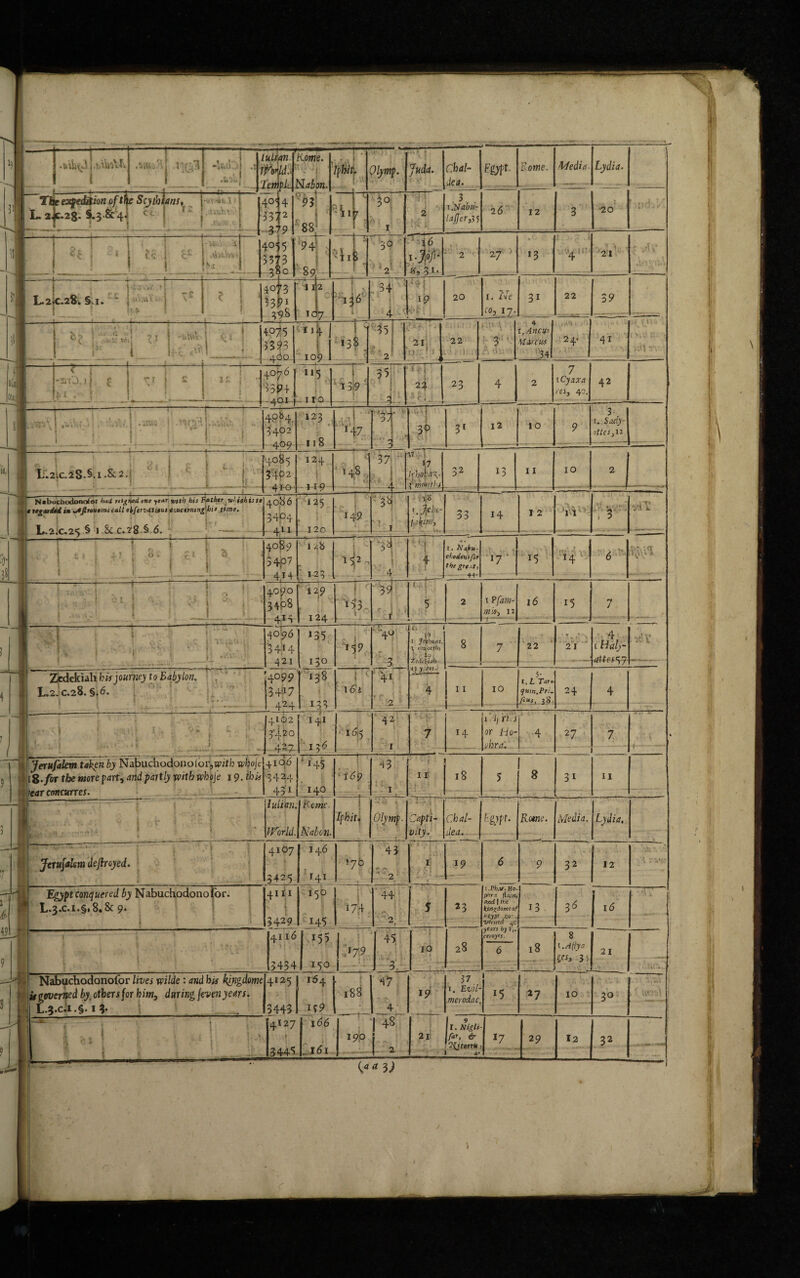 Iulian. Rome. Iphit. Olymp. Juda. Chal- Egypt. Rome. Media. Lydia.
World. dea.
Temple. Nabon.
The expedition of the Scythians, 4054 93 117 30 2 3 26 12 3 20
L. 2.c.28. §.3.&4. 3372 1.Nabu-
379 88 1 lasser,35
4055 94 118 30 16 2 27 13 4 21
3373 1.Josi-
380 89 2 as, 31.
L.2.c.28. §.1. 4073 112 136 34 19 20 1. Ne 31 22 39
3391 co, 17.
398 107 4
4075 114 138 35 21 22 3 4 24 41
3393 1.Ancus
400 109 2 Martius
34
4076 115 139 35 22 23 4 2 7 42
3394 1 Cyaxa
401 110 3 res, 40.
4084 123 147 37 30 31 12 10 9 3
3402 1. Sady-
409 118 3 attes,12
L.2.c.28.§.1.&2. 4085 124 148 37 17 32 13 11 10 2
3402
410 119 4 3 months
Nabuchodonosor had reigned one year with his Father, which is to 4086 125 149 38 18 33 14 12 11 3
be regarded in Astronomicall observations concerning his time. 3404
L.2.c.25 § 1 & c.28 § 6. 411 120 1
4089 128 152 38 4 1. Nabu- 17 15 14 6
3407 chodonosor
414 123 4 the great,
44.
4090 129 153 39 5 2 1 Psam- 16 15 7
3408 mis, 12
415 124 1
4096 135 159 40 8 7 22 21 4
3414 1 Haly-
421 130 3 Zedekiah attes 57
11 years.
Zedekiah his journey to Babylon. 4099 138 162 41 4 11 10 5. 24 4
L.2. c.28. §.6. 3417 1. L Tar-
424 133 2 quin.Pri-
scus, 38
4102 141 165 42 7 14 or Ho- 4 27 7
3420 phra.
427 136 1
Jerusalem taken by Nabuchodonosor, with whose 4106 145 169 43 11 18 5 8 31 11
18. for the more part, and partly with whose 19. this 3424
year concurres. 431 140 1
Iulian. Rome Iphit. Olymp. Capti- Chal- Egypt. Rome. Media. Lydia.
World. Nabon. vity. dea.
Jerusalem destroyed. 4107 146 170 43 1 19 6 9 32 12
3425 141 2
Egypt conquered by Nabuchodonosor. 4111 150 174 44 5 23 13 36 16
L.3.c.1.§.8.& 9. 3429 145 2
4116 155 179 45 10 28 6 18 8 21
3434 150 3 1.Astya
ges, 35
Nabuchodonosor lives wilde: and his kingdome 4125 164 188 47 19 37 15 27 10 30
is governed by others for him, during seven years. 1. Evil-
L.3.c.1.§.13. 3443 159 4 merodac,
4127 166 190 48 21 9 17 29 12 32
1. Nigli-
3445 161 2 sar, &
(aa 3)